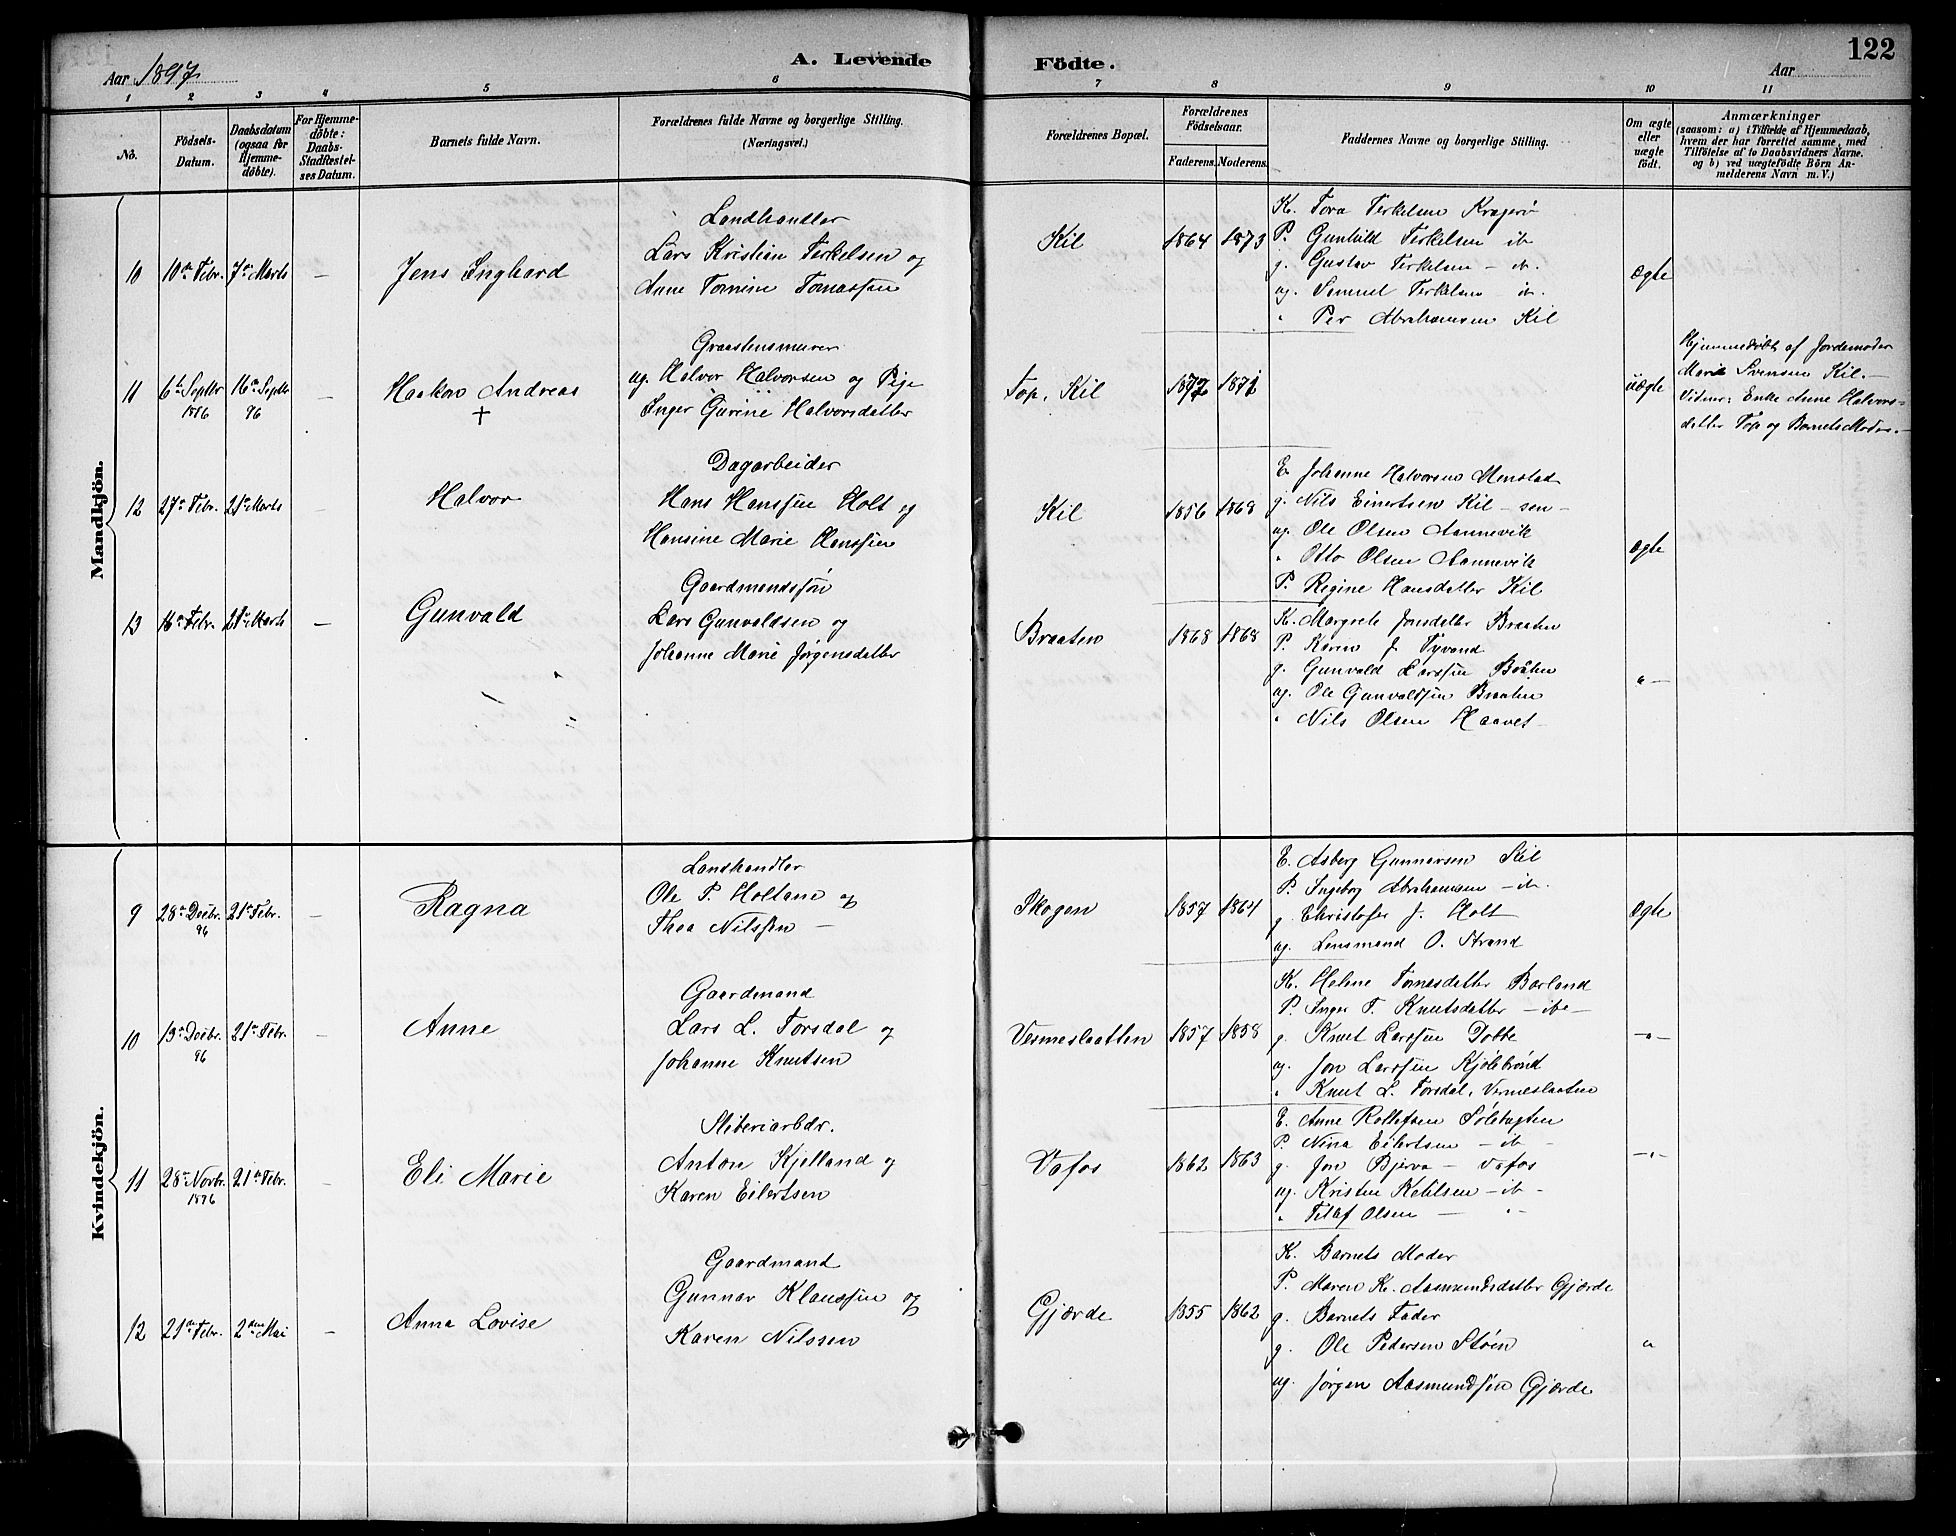 Aar 1897
A. Levende Födte.
Aar
122
1 2 3 4 5 6 7 8 9 10 11
No.
Födsels-Datum.
Daabsdatum (ogsaa for Hjemme-döbte).
For Hjemme-döbte: Daabs-Stadfæstel-ses Datum.
Barnets fulde Navn.
Forældrenes fulde Navne og borgerlige Stilling. (Næringsvei.)
Forældrenes Bopæl.
Forældrenes Födselsaar.
Faderens. Moderens.
Faddernes Navne og borgerlige Stilling.
Om ægte eller uægte födt.
Anmærkninger
(saasom: a) i Tilfælde af Hjemmedaab,
hvem der har forrettet samme, med
Tilföielse af to Daabsvidners Navne.
og b) ved uægtefödte Börn An-
melderens Navn m. V.)
Mandkjön.
10 10de Febr. 7de Marts — Jens Inghard
Landhandler
Lars Kristian Terkelsen og
Anne Tomine Tomassen
Kil 1864 1873
K. Tora Terkelsen Kragerö
P. Gunhild Terkelsen ib
g. Gustav Terkelsen — ib.
ug. Semuel Terkelsen — ib.
" Per Abrahamsen Kil
Ægte
11 6te Septbr 1896 16de Septbr 96 — Haakon Andreas †
Graastensmurer
ug. Halvor Halvorsen og Pige
Inger Gurine Halvorsdatter
Top, Kil 1872 1871
Uægte
Hjemmedöbt af Jordemoder
Marie Svensen Kil.—
Vidner: Enke Anne Halvors-
datter Top og Barnets Moder.—
12 27de Febr. 21de Marts — Halvor
Dagarbeider
Hans Hanssen Holt og
Hansine Marie Hanssen
Kil 1856 1868
E. Johanne Halvorsen Menstad
g. Nils Einertsen Kil — sen —
ug. Ole Olsen Aannevik
" Otto Olsen Aannevik
P. Regine Hansdatter Kil
Ægte
13 16de Febr. 21de Marts — Gunvald
Gaardmandssön
Lars Gunvaldsen og
Johanne Marie Jörgensdatter
Braaten 1868 1868
K. Margrete Jensdatter Braaten
P. Karen J. Tyvand
g. Gunvald Larssen Bråten
ug. Ole Gunvaldsen Braaten
" Nils Olsen Haavet
" —
Kvindekjön.
9 28de Decbr. 96 21de Febr. — Ragna
Landhandler
Ole P. Holtane og
Thea Nilssen —
Skogen 1857 1864
E. Asberg Gunnarsen Kil
P. Ingeborg Abrahamsen — ib.
g. Christofer J. Holt
ug. Lensmand O. Strand
Ægte
10 13de Decbr. 96 21de Febr. — Anne
Gaardmand
Lars L. Torsdal og
Johanne Knutsen
Vesmeslaatten 1857 1858
K. Helene Tomasdatter Barland
P. Inger T. Knutsdatter — ibe —
g. Knut Larssen Dobbe
ug. Jon Larssen Kjölebrönd
" Knut L. Torsdal, Vesmeslaatten
— " —
11 28de Novbr. 1896 21de Febr. — Eli Marie
Sliberiarbdr.
Anton Kjelland og
Karen Eilertsen
Vafos 1862 1863
E. Anne Rollefsen Sölebugten
P. Nina Eilertsen — ib —
g. Jon Bjerva — Vafos
ug. Kristen Ketilsen — ib —
" Tellef Olsen — " —
— " —
12 21de Febr. 2den Mai — Anna Lovise
Gaardmand
Gunnar Klaussen og
Karen Nilssen
Gjærde 1855 1862
K. Barnets Moder
P. Maren K. Aasmundsdatter Gjærde
g. Barnets Fader
g. Ole Pedersen Stöen
ug. Jörgen Aasmundsen Gjærde
"